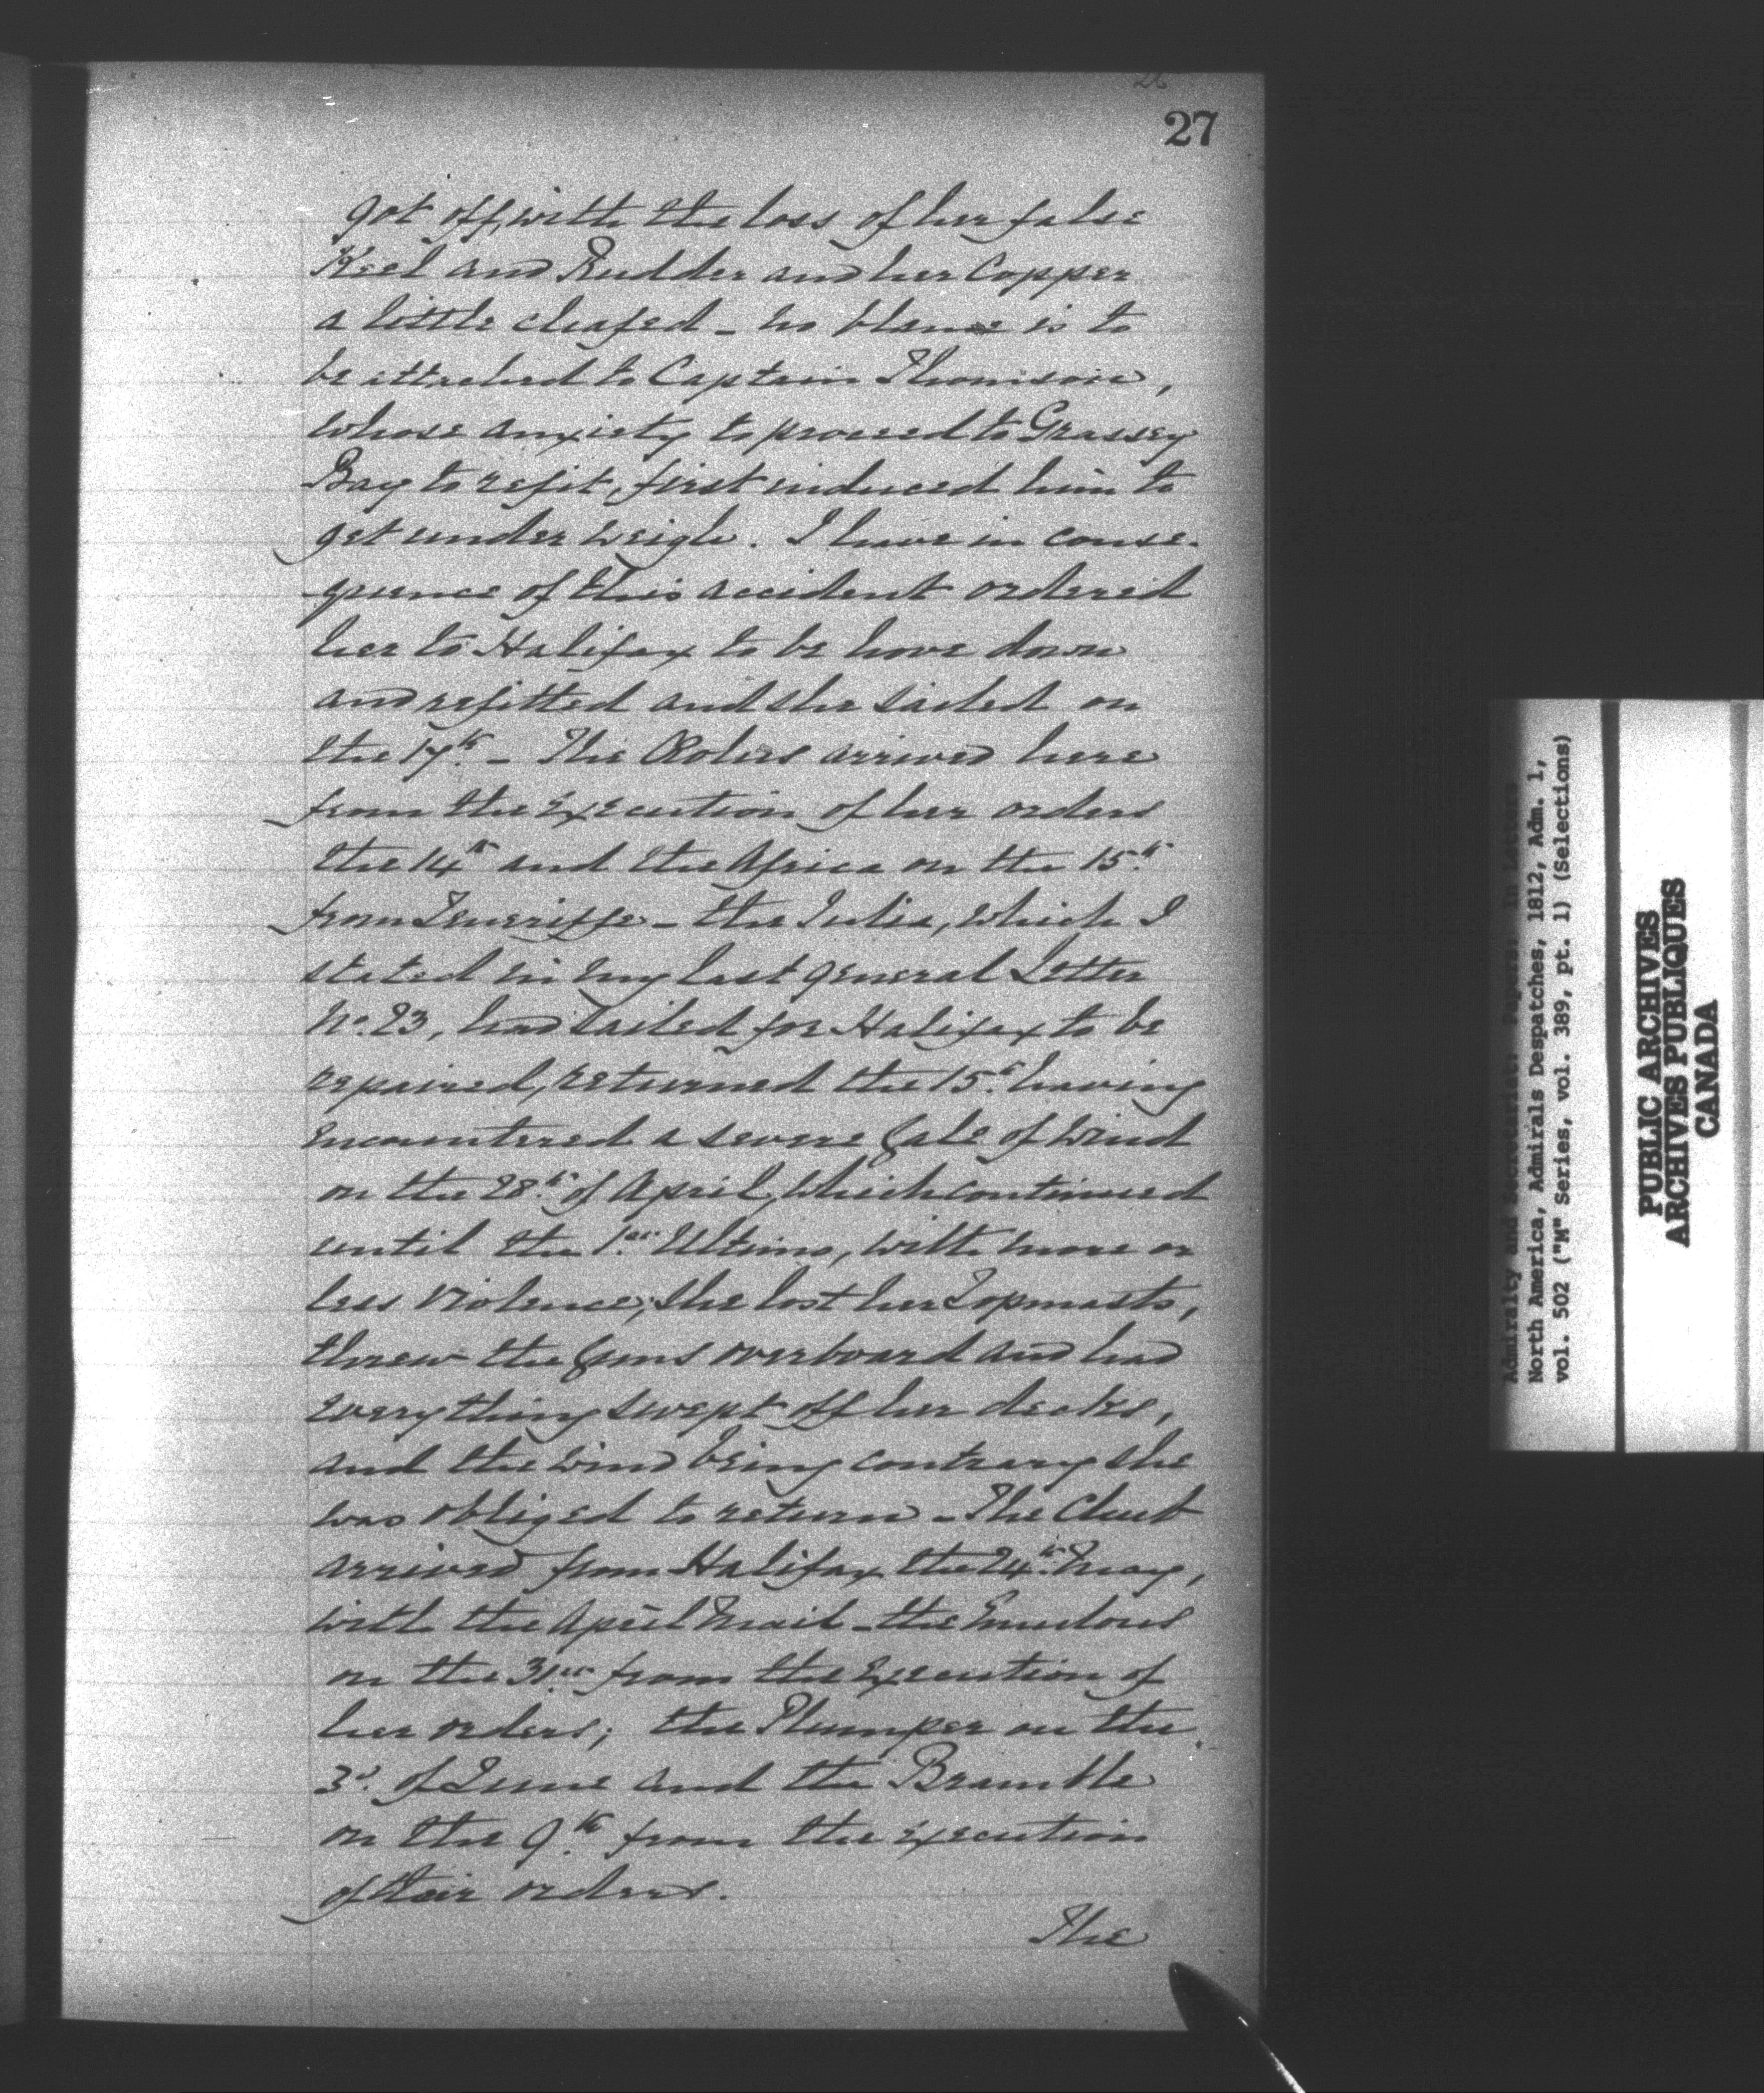 27
got off, with the loss of her false
Keel and Rudder and her Copper
a little chafed - no blame is to
be attached to Captain Thomson,
whose anxiety to proceed to Grassey
Bay to refit, first induced him to
get under weigh. I have in conse-
quence of this accident ordered
her to Halifax to be hove down
and refitted and she sailed on
the 17th. - The Colibri arrived here
from the Execution of her orders
the 14th and the Africa on the 15th.
from Teneriffe - the Julia, which I
stated in my last General Letter
No. 23, had sailed for Halifax to be
repaired, returned the 15th. having
encountered a severe Gale of Wind
on the 28th. of April, which continued
until the 1st. Ultimo, with more or
less violence; She lost her Topmasts,
threw the Guns overboard and had
everything swept off her decks,
and the wind being contrary she
was obliged to return - The Chub
arrived from Halifax the 24th. May,
with the April Mail - the Emulous
on the 31st. from the Execution of
her orders; the Plumper on the
3d. of June and the Bramble
on the 9th. from the execution
of their orders.
The
Admiralty and Secretariat: Papers: In Letters
North America, Admirals Despatches, 1812, Adm. 1,
vol. 502 ("M" Series, vol. 389, pt. 1) (Selections)
PUBLIC ARCHIVES
ARCHIVES PUBLIQUES
CANADA